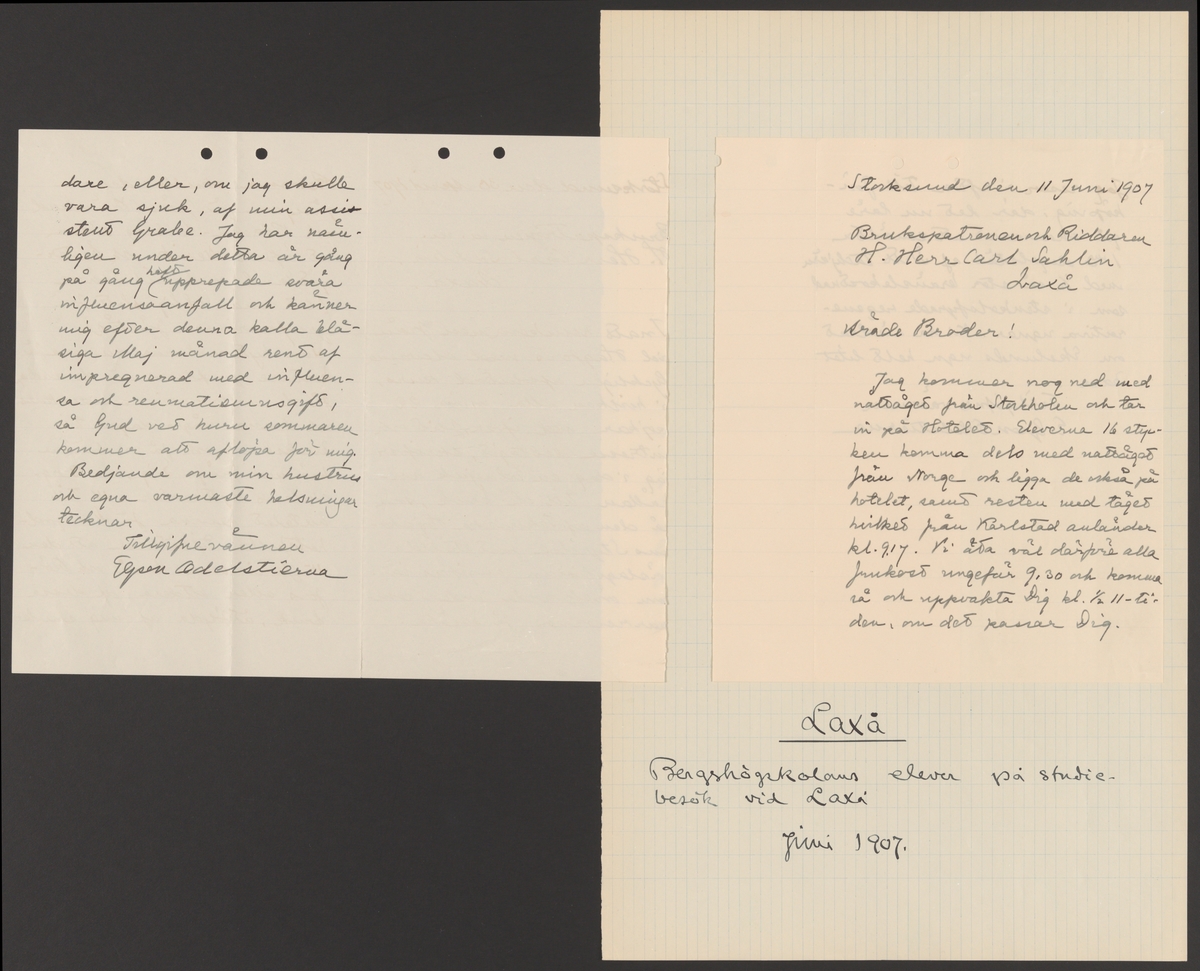 dare, eller, om jag skulle
vara sjuk, af min assi
stent Grabe. Jag har näm-
ligen under detta år gång
på gång haft upprepade svåra
influensaanfall och känner
mig efter denna kalla blå-
siga Maj månad rent af
impregnerad med influen-
sa och reumatismsgift,
så Gud vet huru sommaren
kommer att aflöpa för mig.
Bedjande om min hustrus
och egna varmaste helsningar
tecknar
Tillgifne vännen
Odelstierna
Storksund den 11 Juni 1907
Brukspatronen och Riddaren
H. Herr Carl Sahlin
Laxå
Käre Broder!
Jag kommer nog ned med
nattåget från Stockholm och tar
in på Hotelet. Eleverna 16 styc-
ken komma dels med nattåget
från Norge och ligga de också på
hotelet, samt resten med tåget
hvilket från Karlstad anländer
kl. 9,17. Vi äta väl därför alla
frukost ungefär 9,30 och komma
så och uppvakta Dig kl. ½ 11-ti-
den, om det passar Dig.
Laxå
Bergshögskolans elever på studie-
besök vid Laxå
Juni 1907.